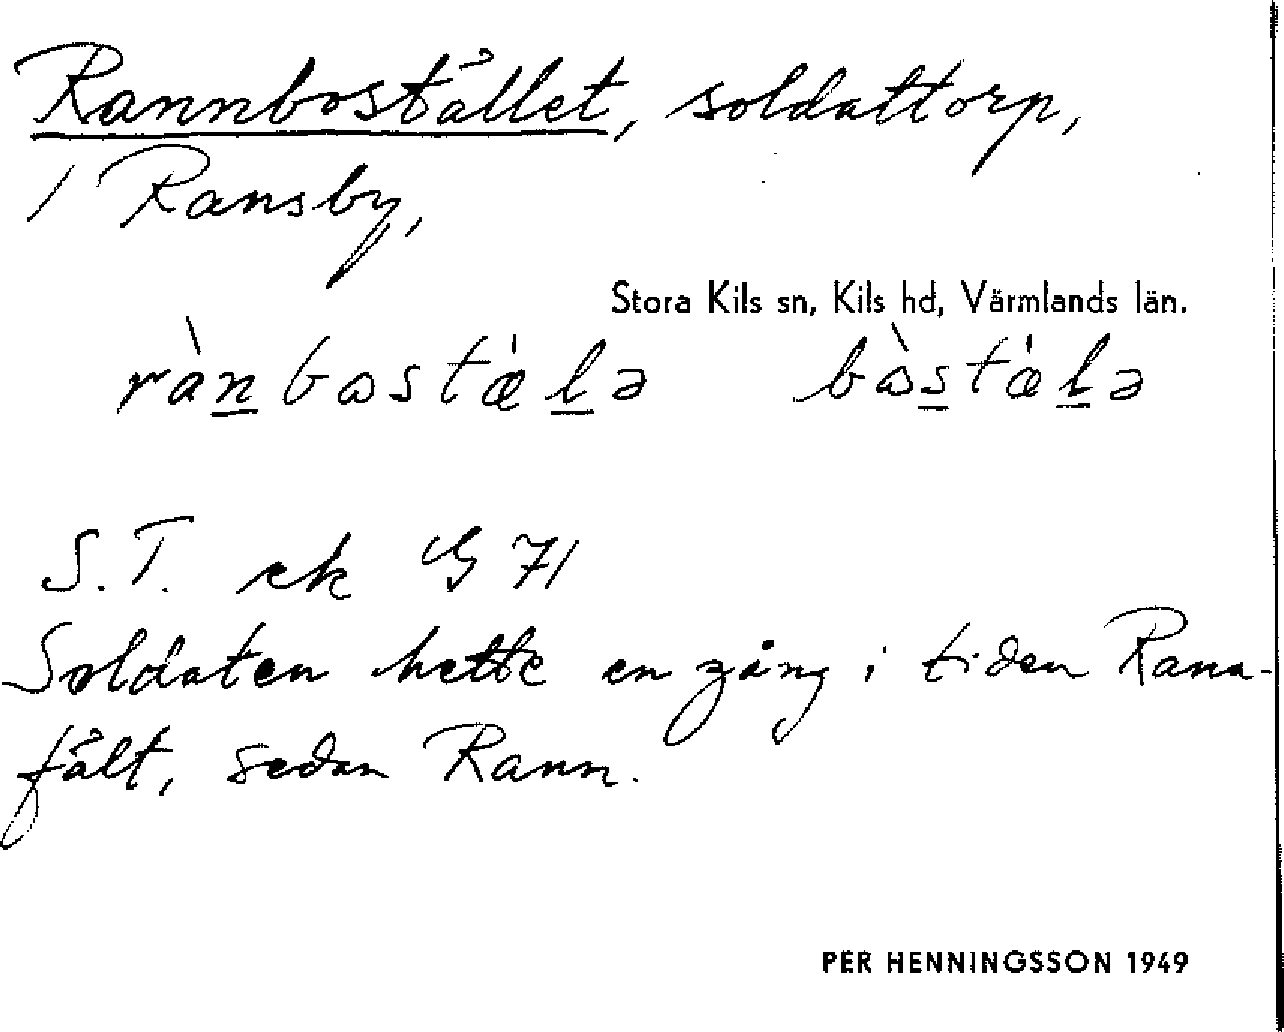 Rannbostället, soldattorp,
/ Ransby,
Stora Kils sn, Kils hd, Värmlands län.
rànbωstǽlə bὼstǽlə
S.T. ek 71
Soldaten hette en gång i tiden Rann-
fält, sedan Rann.
PER HENNINGSSON 1949